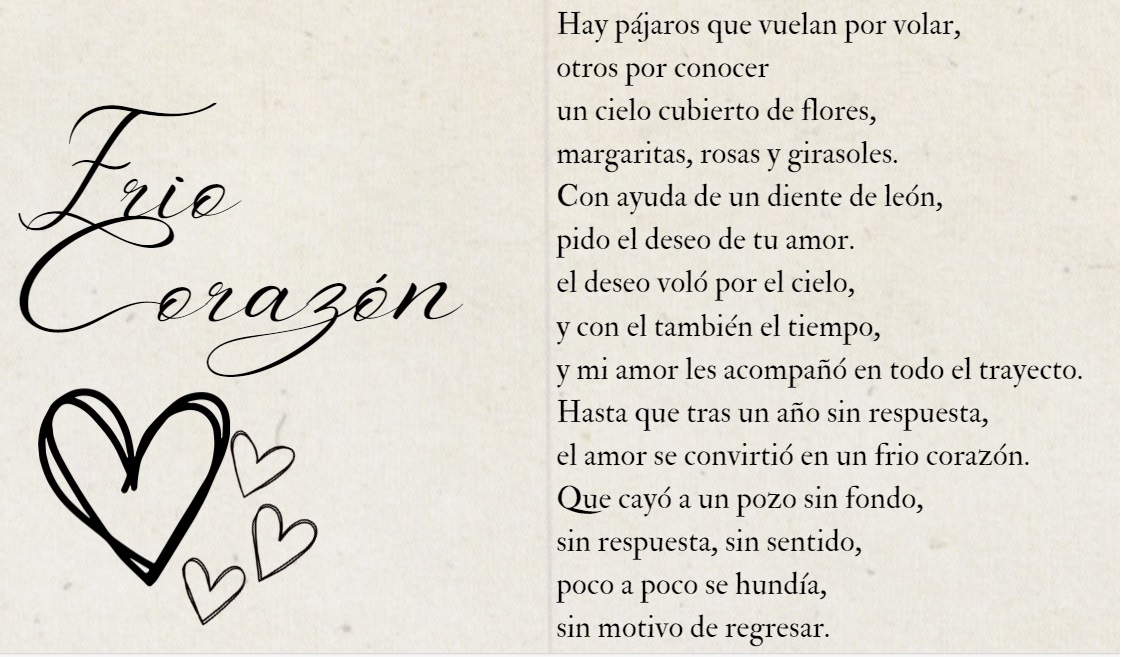 Frio
Corazón
Hay pájaros que vuelan por volar,
otros por conocer
un cielo cubierto de flores,
margaritas, rosas y girasoles.
Con ayuda de un diente de león,
pido el deseo de tu amor.
el deseo voló por el cielo,
y con el también el tiempo,
y mi amor les acompañó en todo el trayecto.
Hasta que tras un año sin respuesta,
el amor se convirtió en un frio corazón.
Que cayó a un pozo sin fondo,
sin respuesta, sin sentido,
poco a poco se hundía,
sin motivo de regresar.